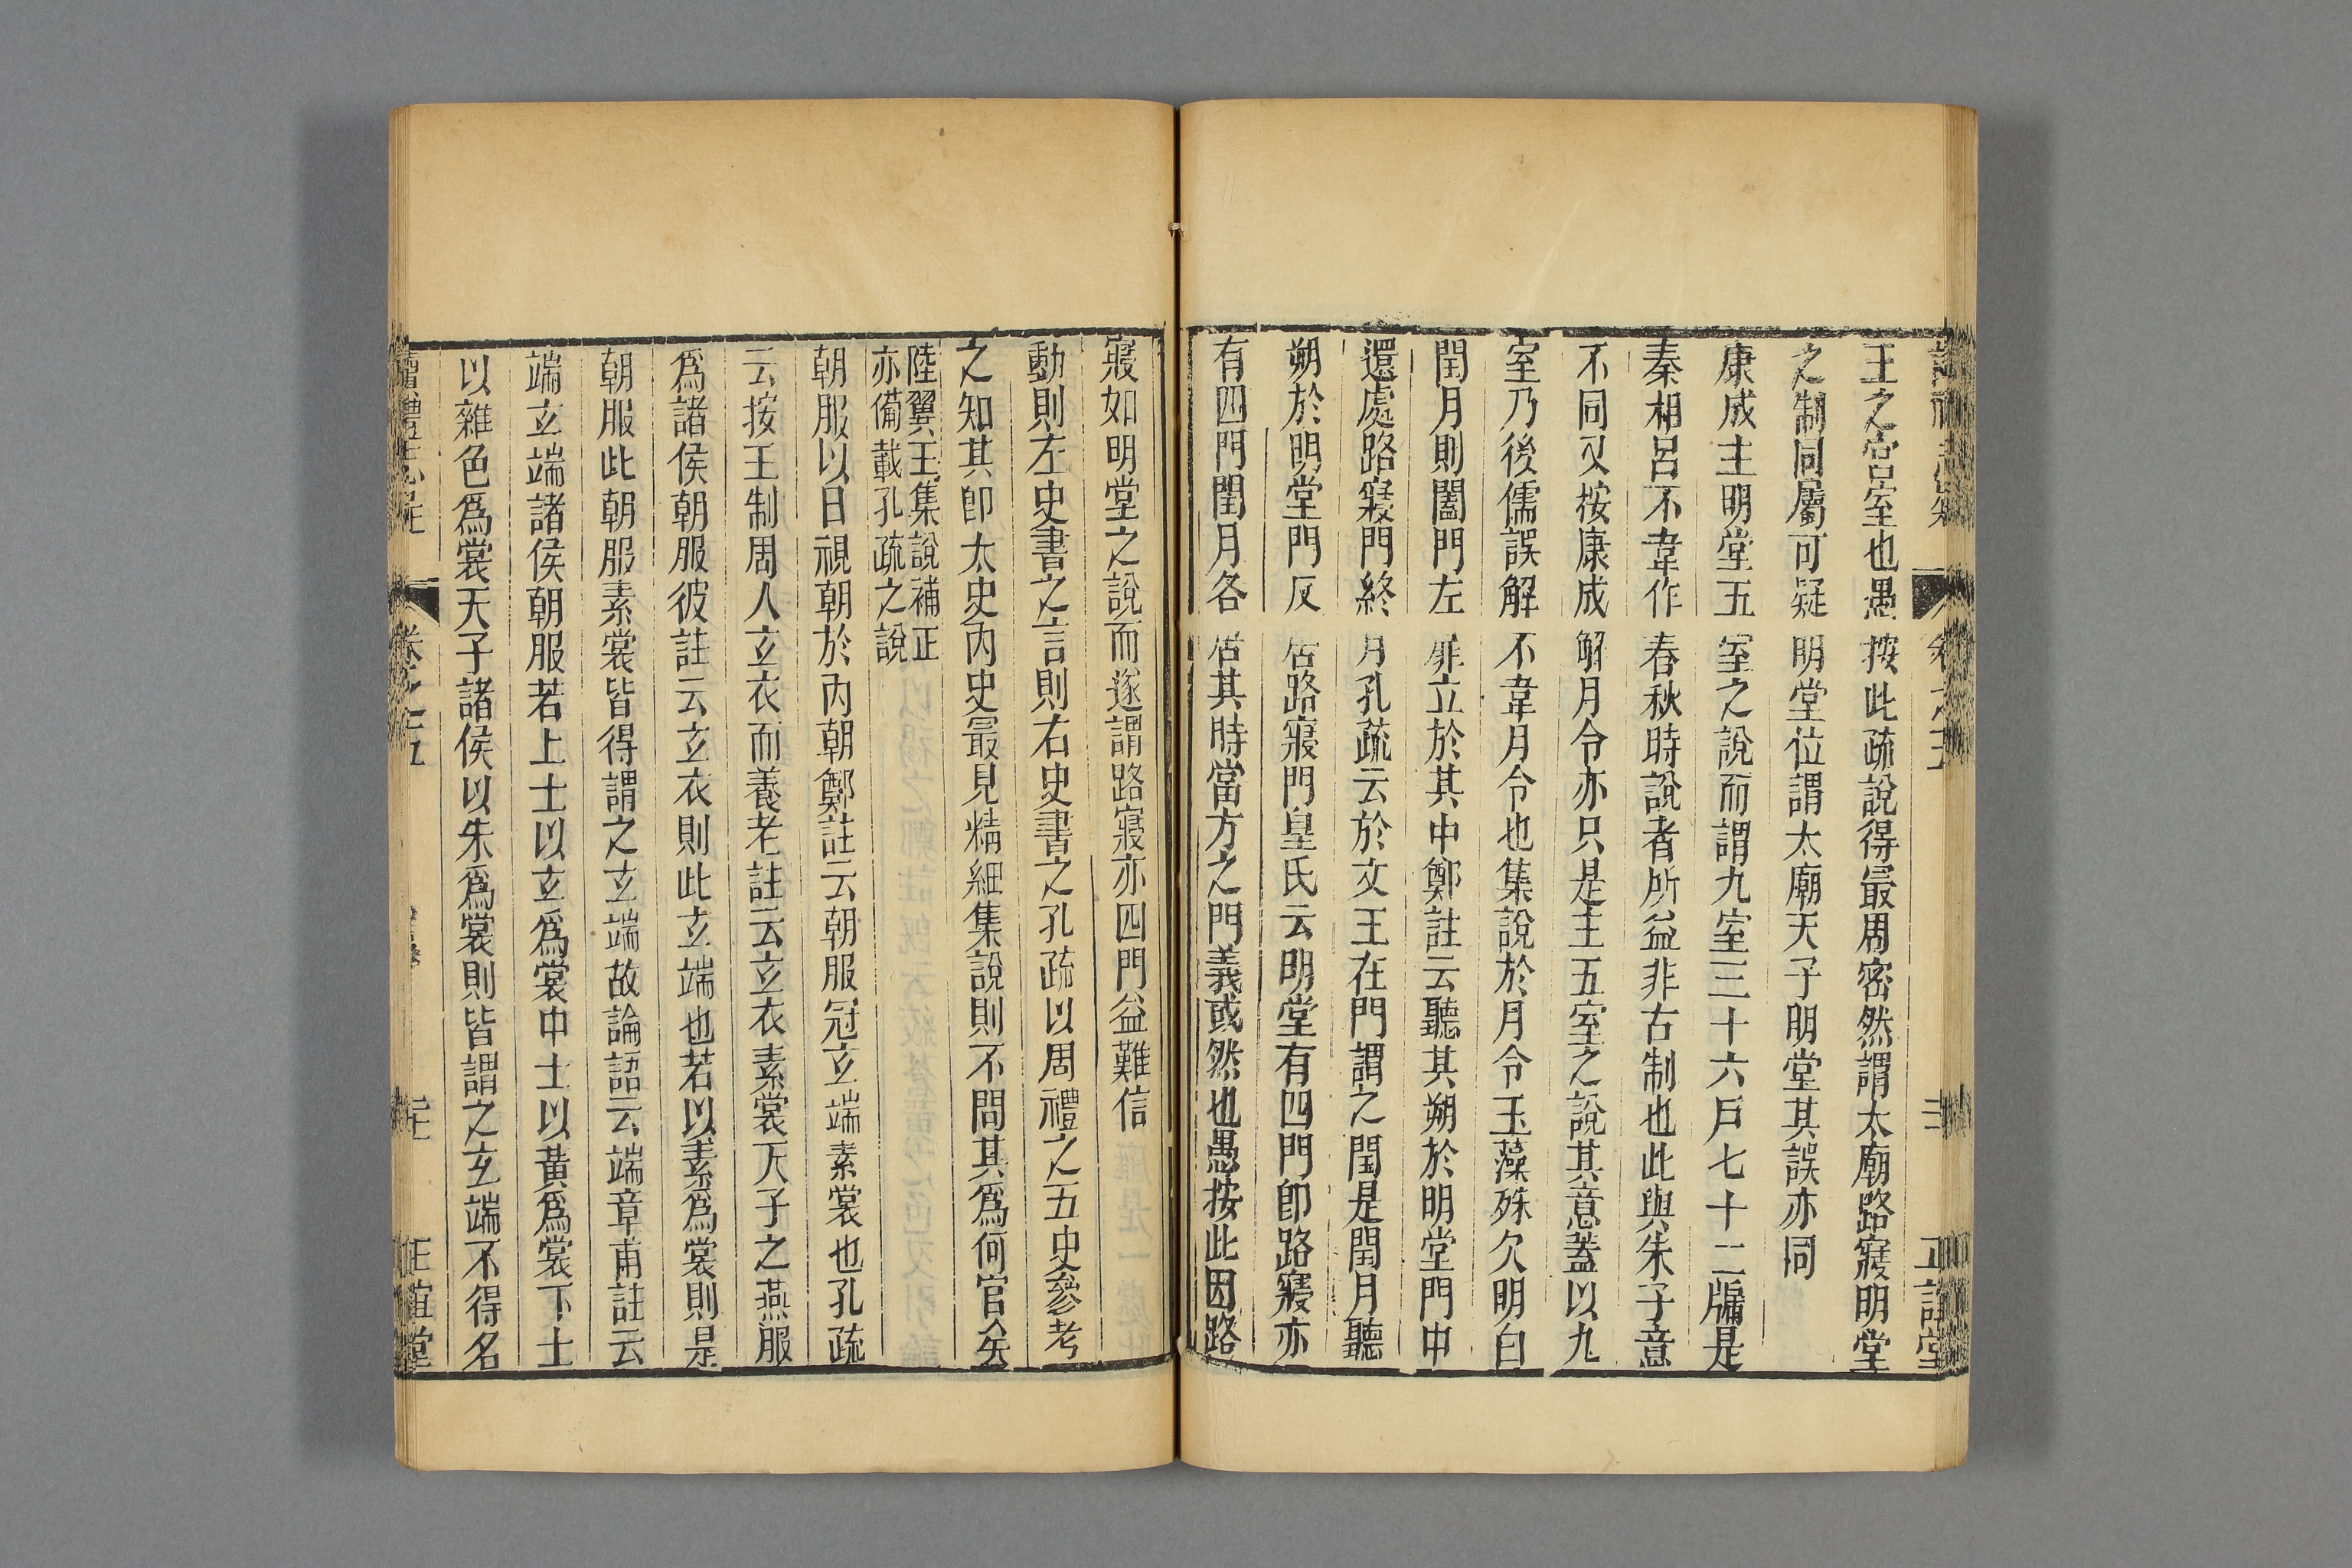 王之宮室也愚按此疏說得最周密然謂太廟路寢明堂
之制同屬可疑明堂位謂太廟天子明堂其誤亦同
康成主明堂五室之說而謂九室三十六戶七十二牖是
秦相呂不韋作春秋時說者所益非古制也此與朱子意
不同又按康成解月令亦只是主五室之說其意蓋以九
室乃後儒誤解不韋月令也集說於月令玉藻殊欠明白
閏月則闔門左扉立於其中鄭註云聽其朔於明堂門中
還處路寢門終月孔疏云於文王在門謂之閏是閏月聽
朔於明堂門反居路寢門皇氏云明堂有四門卽路寢亦
有四門閏月各居其時當方之門義或然也愚按此因路
寢如明堂之說而遂謂路寢亦四門益難信
動則左史書之言則右史書之孔疏以周禮之五史參考
之知其卽太史內史最見精細集說則不問其爲何官矣
陸翼王集說補正
亦備載孔疏之說
朝服以日視朝於內朝鄭註云朝服冠玄端素裳也孔疏
云按王制周人玄衣而養老註云玄衣素裳天子之燕服
爲諸侯朝服彼註云玄衣則此玄端也若以素爲裳則是
朝服此朝服素裳皆得謂之玄端故論語云端章甫註云
端玄端諸侯朝服若上士以玄爲裳中士以黃爲裳下士
以雜色爲裳天子諸侯以朱爲裳則皆謂之玄端不得名
讀禮志疑
卷之五
正誼堂